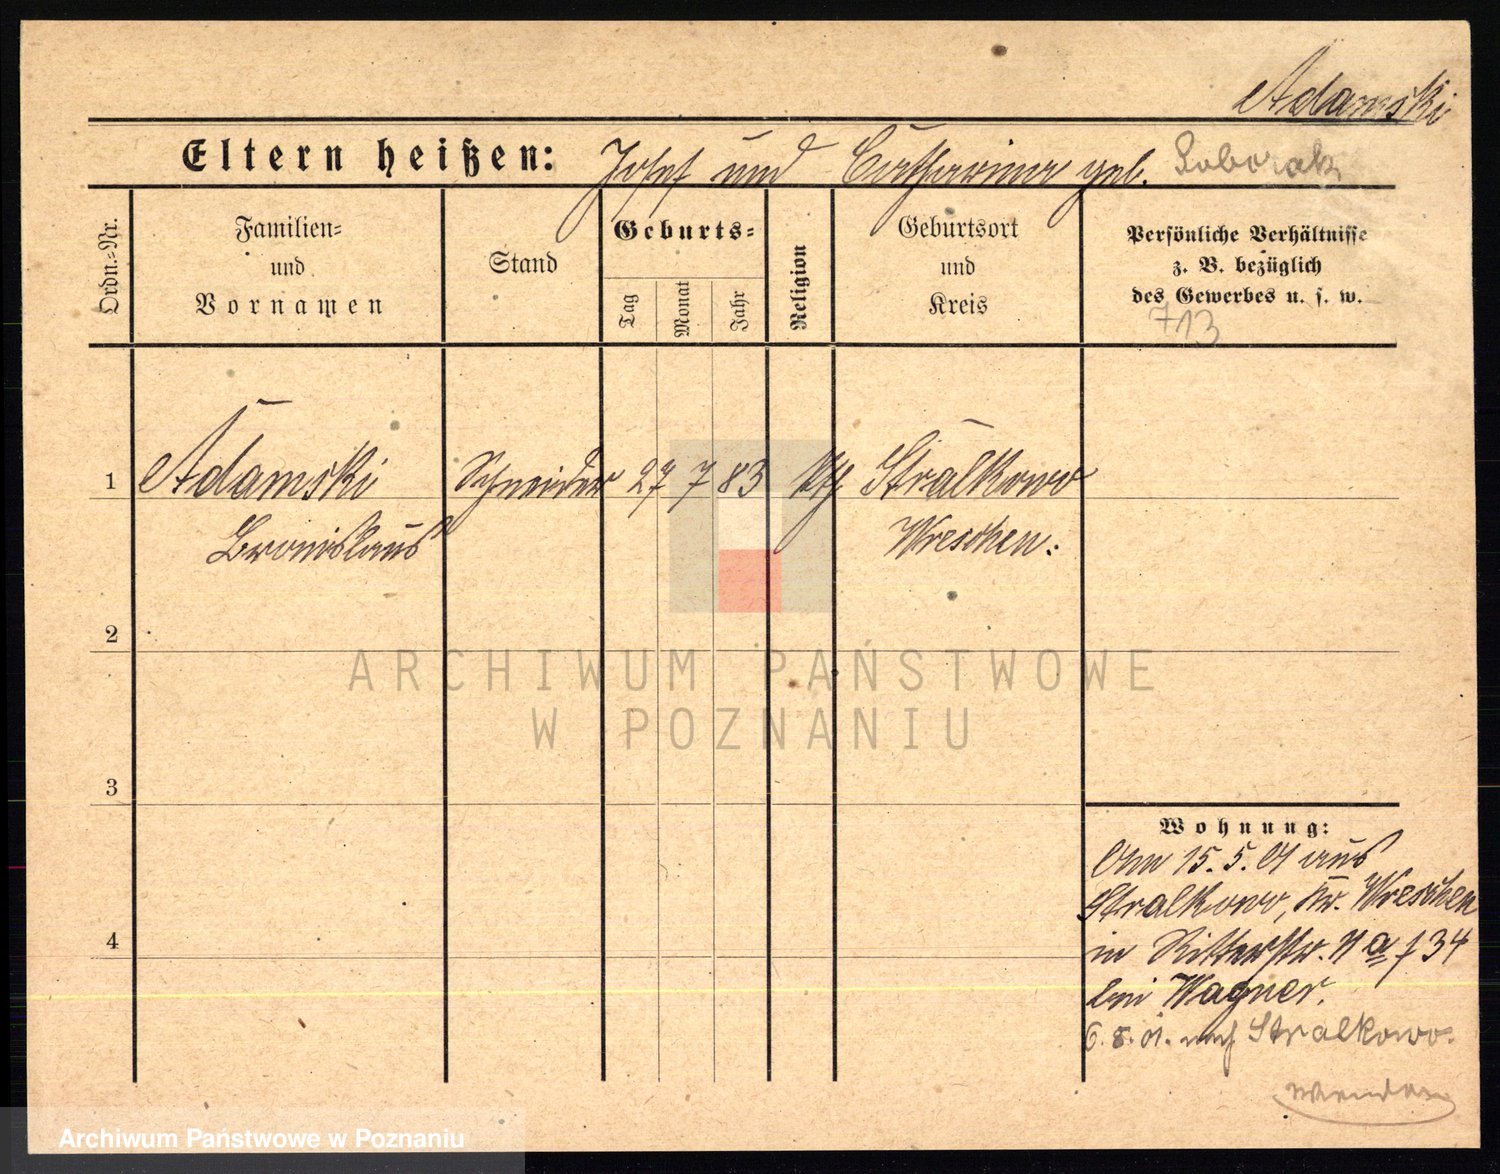 Adamski
Eltern heißen: Josef und Catharina geb. Soborak
Ordn.-Nr.
Familien- und Vornamen
Stand
Geburts-
Tag
Monat
Jahr
Religion
Geburtsort und Kreis
Persönliche Verhältnisse
z. B. bezüglich
des Gewerbes u. s. w.
713
1 Adamski Schneider 27 7 83 kth Stralkowo
Bronislaus Wreschen.
2
3
4
Wohnung:
Am 15.5.01 aus
Stralkowo, Kr. Wreschen
in Ritterstr. 11 a f 34
bei Wagner.
6.8.01. nach Stralkowo.
wenden
ARCHIWUM PAŃSTWOWE
W POZNANIU
Archiwum Państwowe w Poznaniu